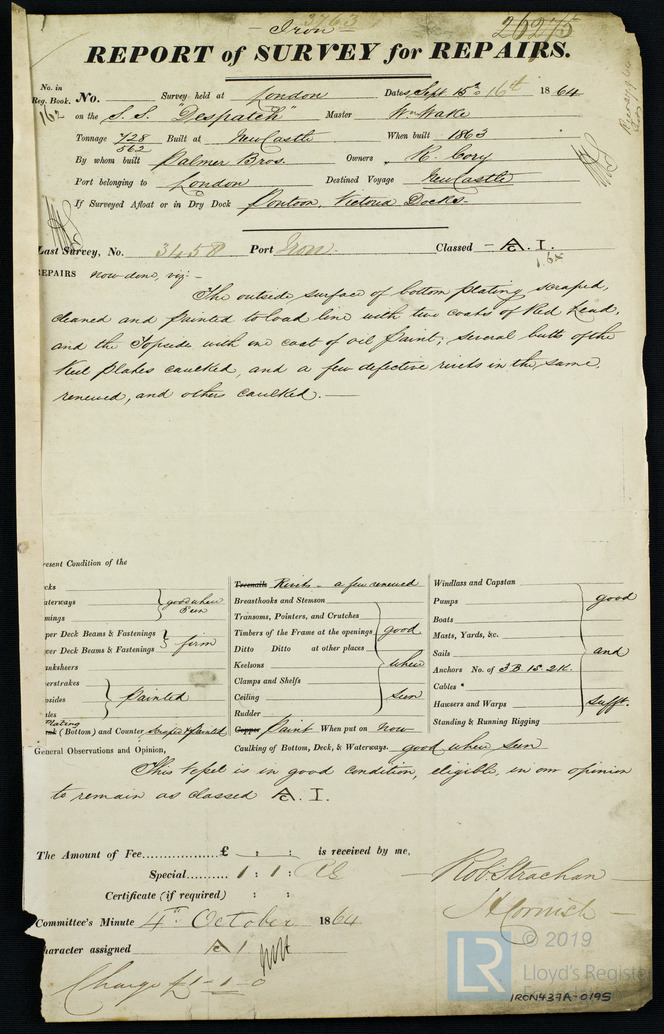 Iron 3763 26275
REPORT of SURVEY for REPAIRS.
No. in
Reg. Book. No. Survey held at London Dates, Sept 15th & 16th 1864
162 on the S. S. "Despatch" Master Wm Wake
Tonnage 728/562 Built at NewCastle When built 1863
By whom built Palmer Bros. Owners R. Cory
Port belonging to London Destined Voyage NewCastle
If Surveyed Afloat or in Dry Dock Pontoon, Victoria Docks.
Last Survey, No. 3458 Port Iron. Classed A. I.
REPAIRS now done, viz: -
The outside surface of bottom plating scraped,
cleaned and painted to load line with two coats of Red Lead,
and the Topside with one coat of oil Paint, several butts of the
Keel plates caulked, and a few defective rivets in the same,
renewed, and others caulked. —
resent Condition of the
cks
aterways good when
mings Seen
per Deck Beams & Fastenings firm
wer Deck Beams & Fastenings
anksheers
erstrakes
psides Painted
ales
Plating
(Bottom) and Counter Scraped & Painted
Treenails Rivets - a few renewed
Breasthooks and Stemson
Transoms, Pointers, and Crutches
Timbers of the Frame at the openings good
Ditto Ditto at other places
Keelsons when
Clamps and Shelfs
Ceiling Seen
Rudder
Copper Paint When put on Now
Caulking of Bottom, Deck, & Waterways. good when seen
Windlass and Capstan
Pumps good
Boats
Masts, Yards, &c.
Sails and
Anchors No. of 3B. 1S. 2K.
Cables
Hawsers and Warps Sufft.
Standing & Running Rigging
General Observations and Opinion,
This Vessel is in good condition, eligible, in our opinion
to remain as classed A. I.
The Amount of Fee £ : : is received by me,
Special 1 : 1 :
Certificate (if required) : :
Robt Strachan
J H Cornish
Committee's Minute 4th October 1864
haracter assigned A 1
Charge £1-1-0
LR © 2019
Lloyd's Register
Foundation
IRON437A-0195